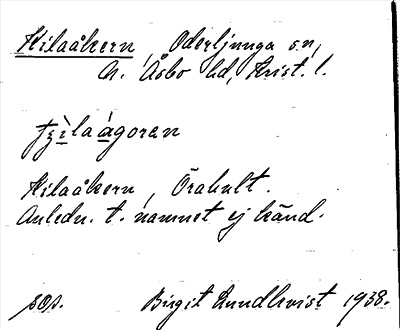 Kilaåkern, Oderljunga sn,
N. Åsbo hd, Krist. l.
Kilaåkern, Örahult.
Anledn. t. namnet ej känd.
Birgit Lundkvist 1938.